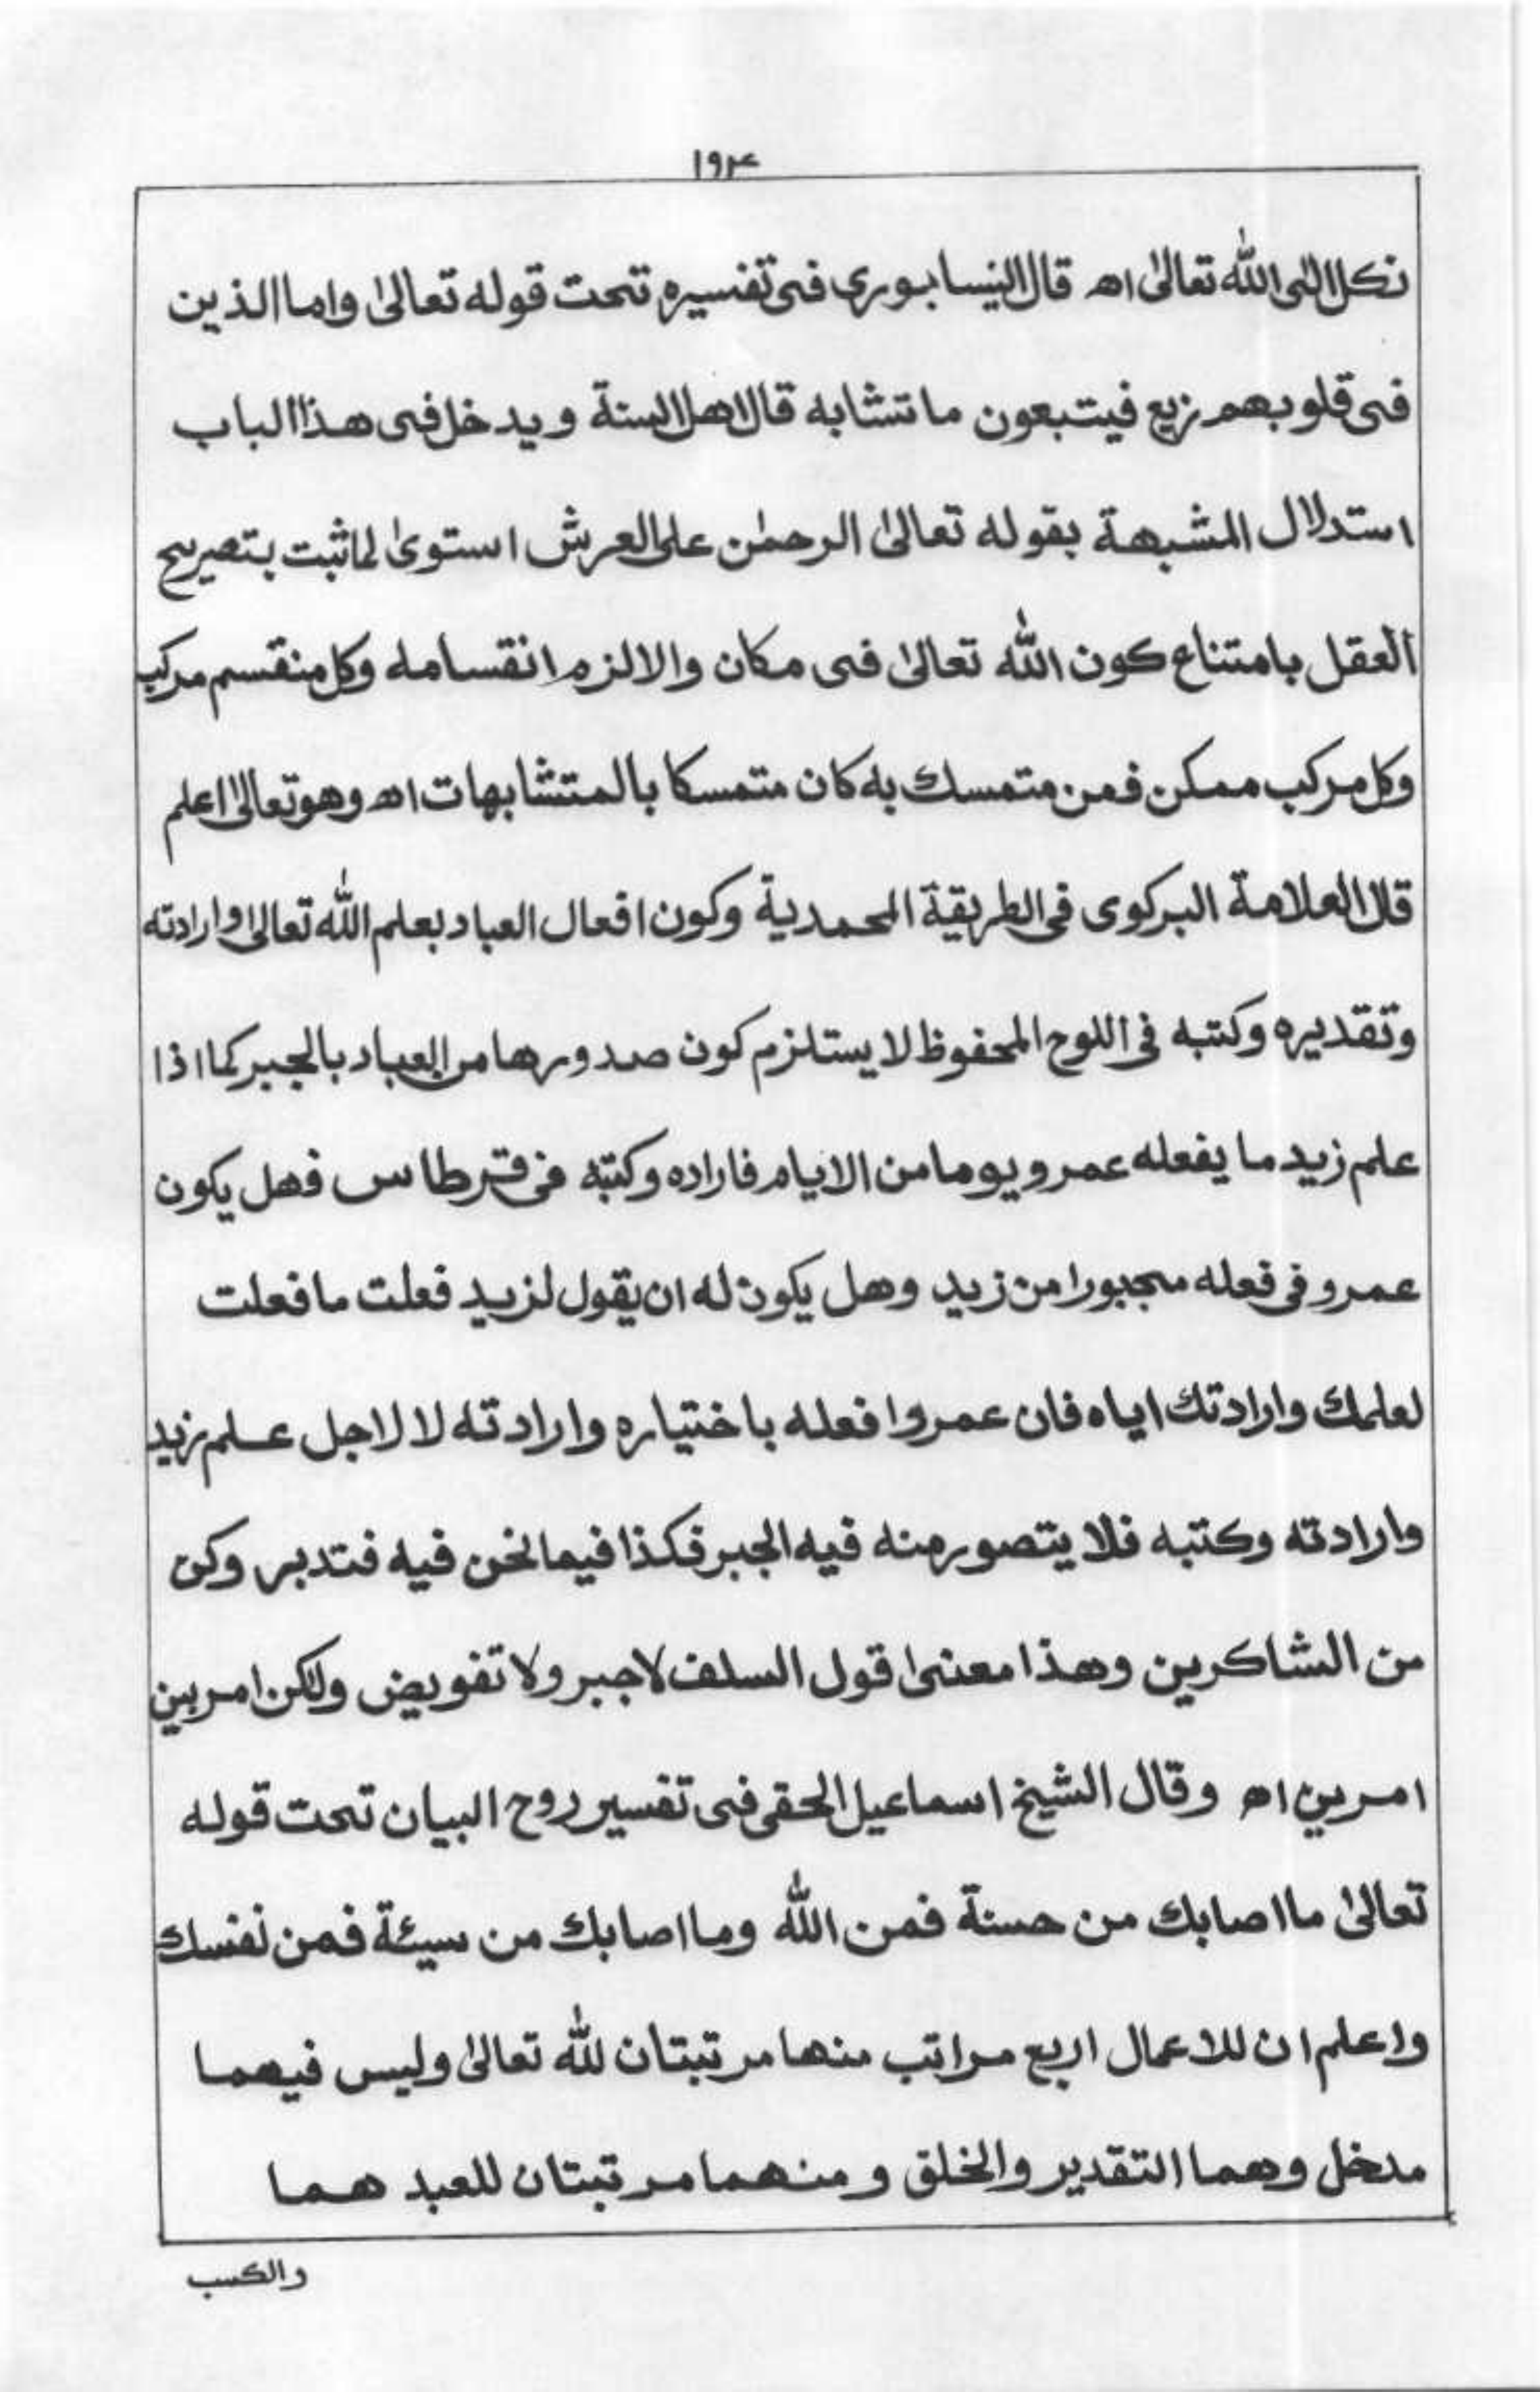 ١٩٤
نكل الى الله تعالىٰ اه قال النيسابوری فی تفسيره تحت قوله تعالىٰ واما الذين
فی قلوبهم زيع فيتبعون ما تشابه قال اهل السنة ويدخل فی هذا الباب
استدلال المشبهة بقوله تعالىٰ الرحمٰن علی العرش استوىٰ لما ثبت بتصريح
العقل بامتناع كون الله تعالىٰ فی مكان والا لزم انقسامه وكل منقسم مركب
وكل مركب ممكن فمن متمسك به كان متمسكا بالمتشابهات اه وهو تعالىٰ اعلم
قال العلامة البركوی فی الطريقة المحمدية وكون افعال العباد بعلم الله تعالىٰ وارادته
وتقديره وكتبه فی اللوح المحفوظ لا يستلزم كون صدورها من العباد بالجبر كما اذا
علم زيد ما يفعله عمرو يوما من الايام فاراده وكتبه فی قرطاس فهل يكون
عمرو فی فعله مجبورا من زيد وهل يكون له ان يقول لزيد فعلت ما فعلت
لعلمك وارادتك اياه فان عمروا فعله باختياره وارادته لا لاجل علم زيد
وارادته وكتبه فلا يتصور منه فيه الجبر فكذا فيما نحن فيه فتدبر وكن
من الشاكرين وهذا معنىٰ قول السلف لا جبر ولا تفويض ولكن امر بين
امرين اه وقال الشيخ اسماعيل الحقی فی تفسير روح البيان تحت قوله
تعالىٰ ما اصابك من حسنة فمن الله وما اصابك من سيئة فمن نفسك
واعلم ان للاعمال اربع مراتب منها مرتبتان لله تعالىٰ وليس فيهما
مدخل وهما التقدير والخلق ومنهما مرتبتان للعبد هما
والكسب